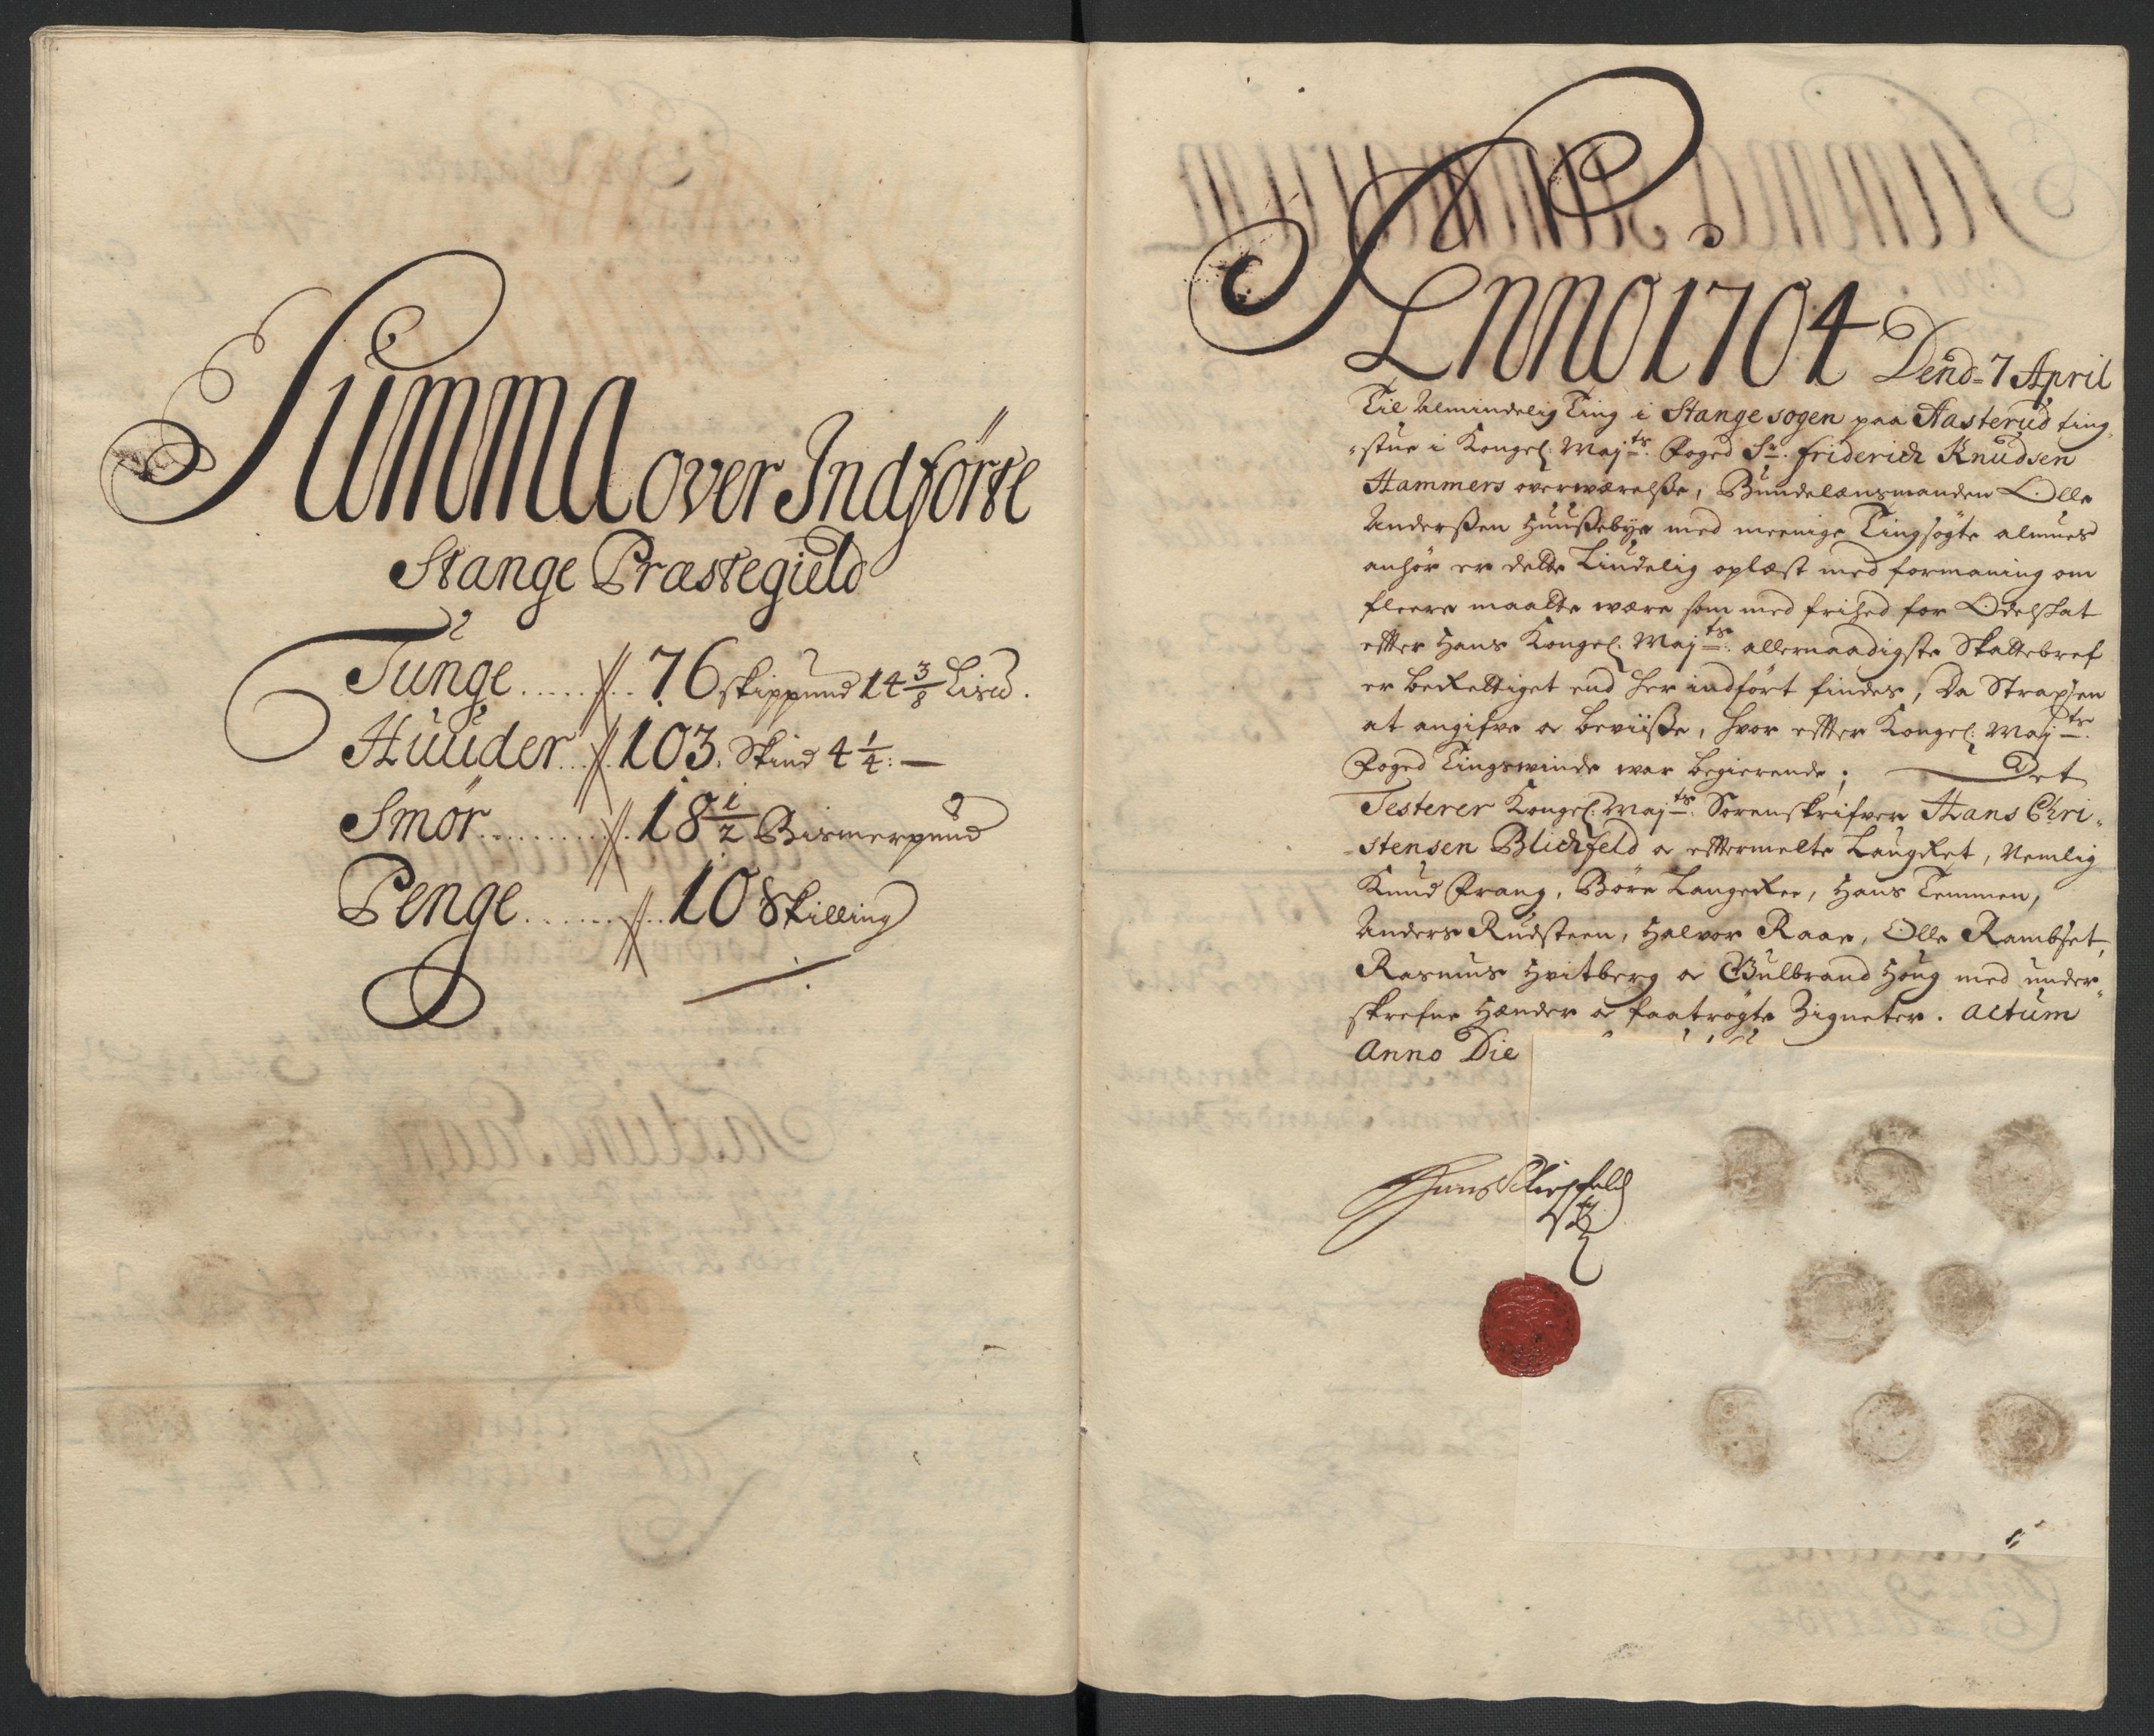 Summa over Indförte
Stange Præstegield
Tunge ...... 76 skippund 14 3/8 Lisp.
Huuder ... 103. Skind 4 1/4: —
Smör ......... 18 1/2 Bismerpund
Penge ........ 10 Skilling
Anno 1704 Dend 7 April
Til Almindelig Ting i Stange sogen paa Aasterud ting„
„stue i Kongel: Maj.ts Foged Sr. friderich Knudsen
Hammers overværelsse, Bundelænsmanden Olle
Anderssen Huussebye med meenige Tingsøgte almues
anhör er dette Liudelig oplæst med formaning om
fleere maatte være som med frihed for Odelskat
efter Hans Kongel: Maj.ts allernaadigste Skattebref
er berettiget end her indfört findes, Da Strax sen
at angifve oc beviisse, hvor efter Kongel: Maj.ts
Foged Tingsvinde var begierende; Det
Testerer Kongel: Maj.ts Sorenskrifver Hans Chri„
„stensen Blichfeld oc eftermelte Laugret, Nemlig
Knud Frang, Börre Langeree, Hans Temmen,
Anders Rudsteen, Halvor Raae, Olle Rambset,
Rasmus Hvitberg oc Gulbrand Houg med under„
skrefne Hænder oc faatrögte Zigneter. Actum
Anno Die
Hans Blichfeld